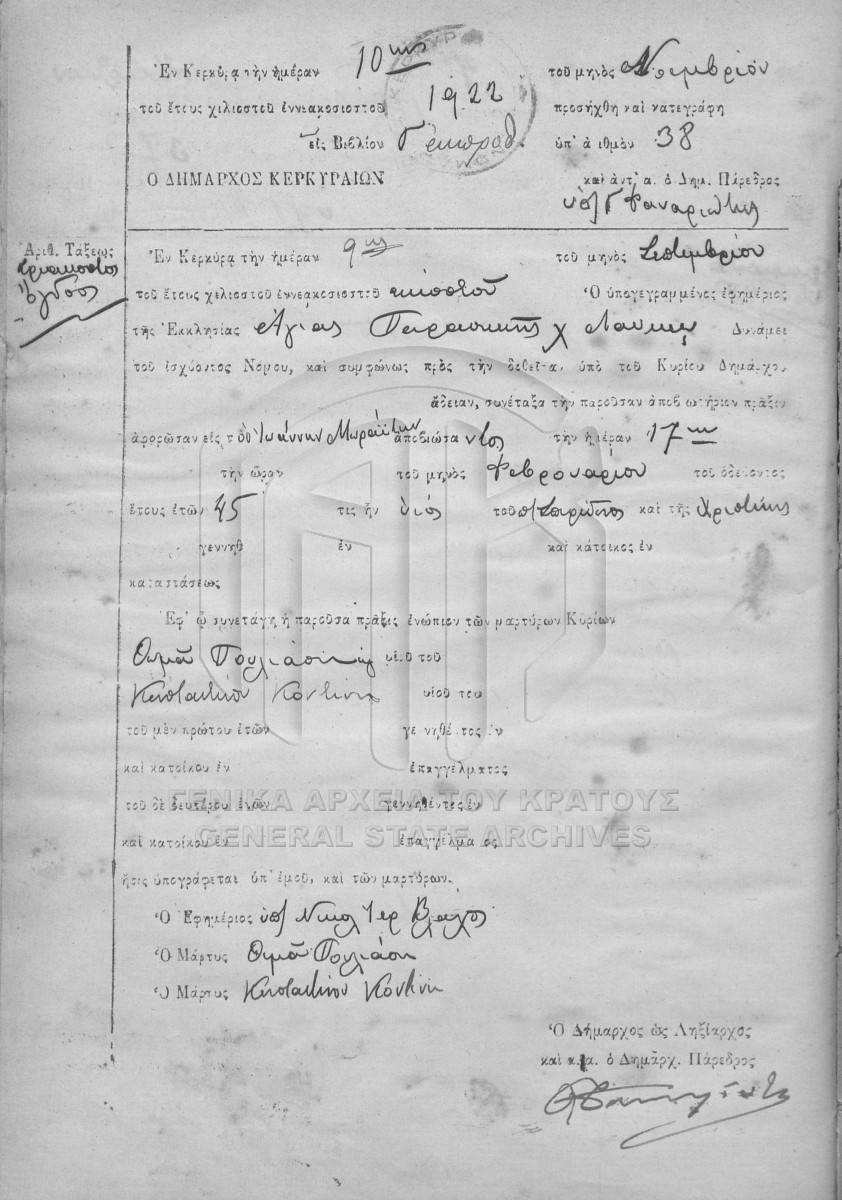 Ἐν Κερκύρᾳ τὴν ἡμέραν 10ην τοῦ μηνὸς Νοεμβρίου
τοῦ ἔτους χιλιοστοῦ ἐννεακοσιοστοῦ 1922 προσήχθη καὶ κατεγράφη
εἰς Βιβλίον Γ' ἐκπροθ. ὑπ' ἀ ιθμὸν 38
Ο ΔΗΜΑΡΧΟΣ ΚΕΡΚΥΡΑΙΩΝ
καὶ ἀντ' α. ὁ Δημ. Πάρεδρος
ὑπ/ Γ Φαναριώτης
Ἀριθ. Τάξεως
τριακοστὸς
ὄγδοος
Ἐν Κερκύρᾳ τὴν ἡμέραν 9ην τοῦ μηνὸς Σεπτεμβρίου
τοῦ ἔτους χιλιοστοῦ ἐννεακοσιοστοῦ εἰκοστοῦ Ὁ ὑπογεγραμμένος ἐφημέριος
τῆς Ἐκκλησίας Ἁγίας Παρασκευῆς χ Δυνάμει
τοῦ ἰσχύοντος Νόμου, καὶ συμφώνως πρὸς τὴν δοθεῖσαν ὑπὸ τοῦ Κυρίου Δημάρχου
ἄδειαν, συνέταξα τὴν παροῦσαν ἀποβ ωτήριον πρᾶξιν
ἀφορῶσαν εἰς τ ὸν Ἰωάννην Μωραΐτην ἀποβιώσα ντος τὴν ἡμέραν 17ην
τὴν ὥραν τοῦ μηνὸς Φεβρουαρίου τοῦ ὁδεύοντος
ἔτους ἐτῶν 45 τις ἦν υἱὸς τοῦ π/ Σπυρίδωνος καὶ τῆς Χριστίνης
γεννηθ ἐν καὶ κάτοικος ἐν
καταστάσεως
Ἐφ' ᾧ συνετάγη ἡ παροῦσα πρᾶξις ἐνώπιον τῶν μαρτύρων Κυρίων
Θωμᾶ Πουλιάση υἱοῦ τοῦ
Κωνσταντίνου Κοντίνη υἱοῦ του
τοῦ μὲν πρώτου ἐτῶν γε νηθέ τος ἐν
καὶ κατοίκου ἐν ἐπαγγέλματος
τοῦ δὲ δευτέρου ἐτῶν γεννηθέντος ἐν
καὶ κατοίκου ἐν ἐπαγγέλμα ος
ἥτις ὑπογράφεται ὑπ' ἐμοῦ, καὶ τῶν μαρτύρων.
Ὁ Ἐφημέριος ὑπ/ Νικολ Ἱερ Βλάχος
Ὁ Μάρτυς Θωμᾶ Πουλιάση
Ὁ Μάρτυς Κωνσταντίνου Κοντίνη
Ὁ Δήμαρχος ὡς Ληξίαρχος
καὶ α.α. ὁ Δημαρχ. Πάρεδρος
ΓΕΝΙΚΑ ΑΡΧΕΙΑ ΤΟΥ ΚΡΑΤΟΥΣ
GENERAL STATE ARCHIVES